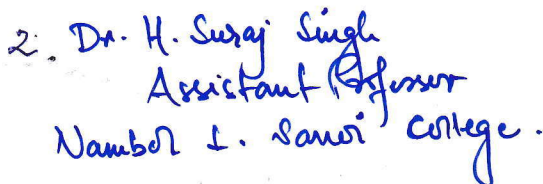 2. Dr. H. Suraj Singh
Assistant Professor
Nambol L. Sanoi College.